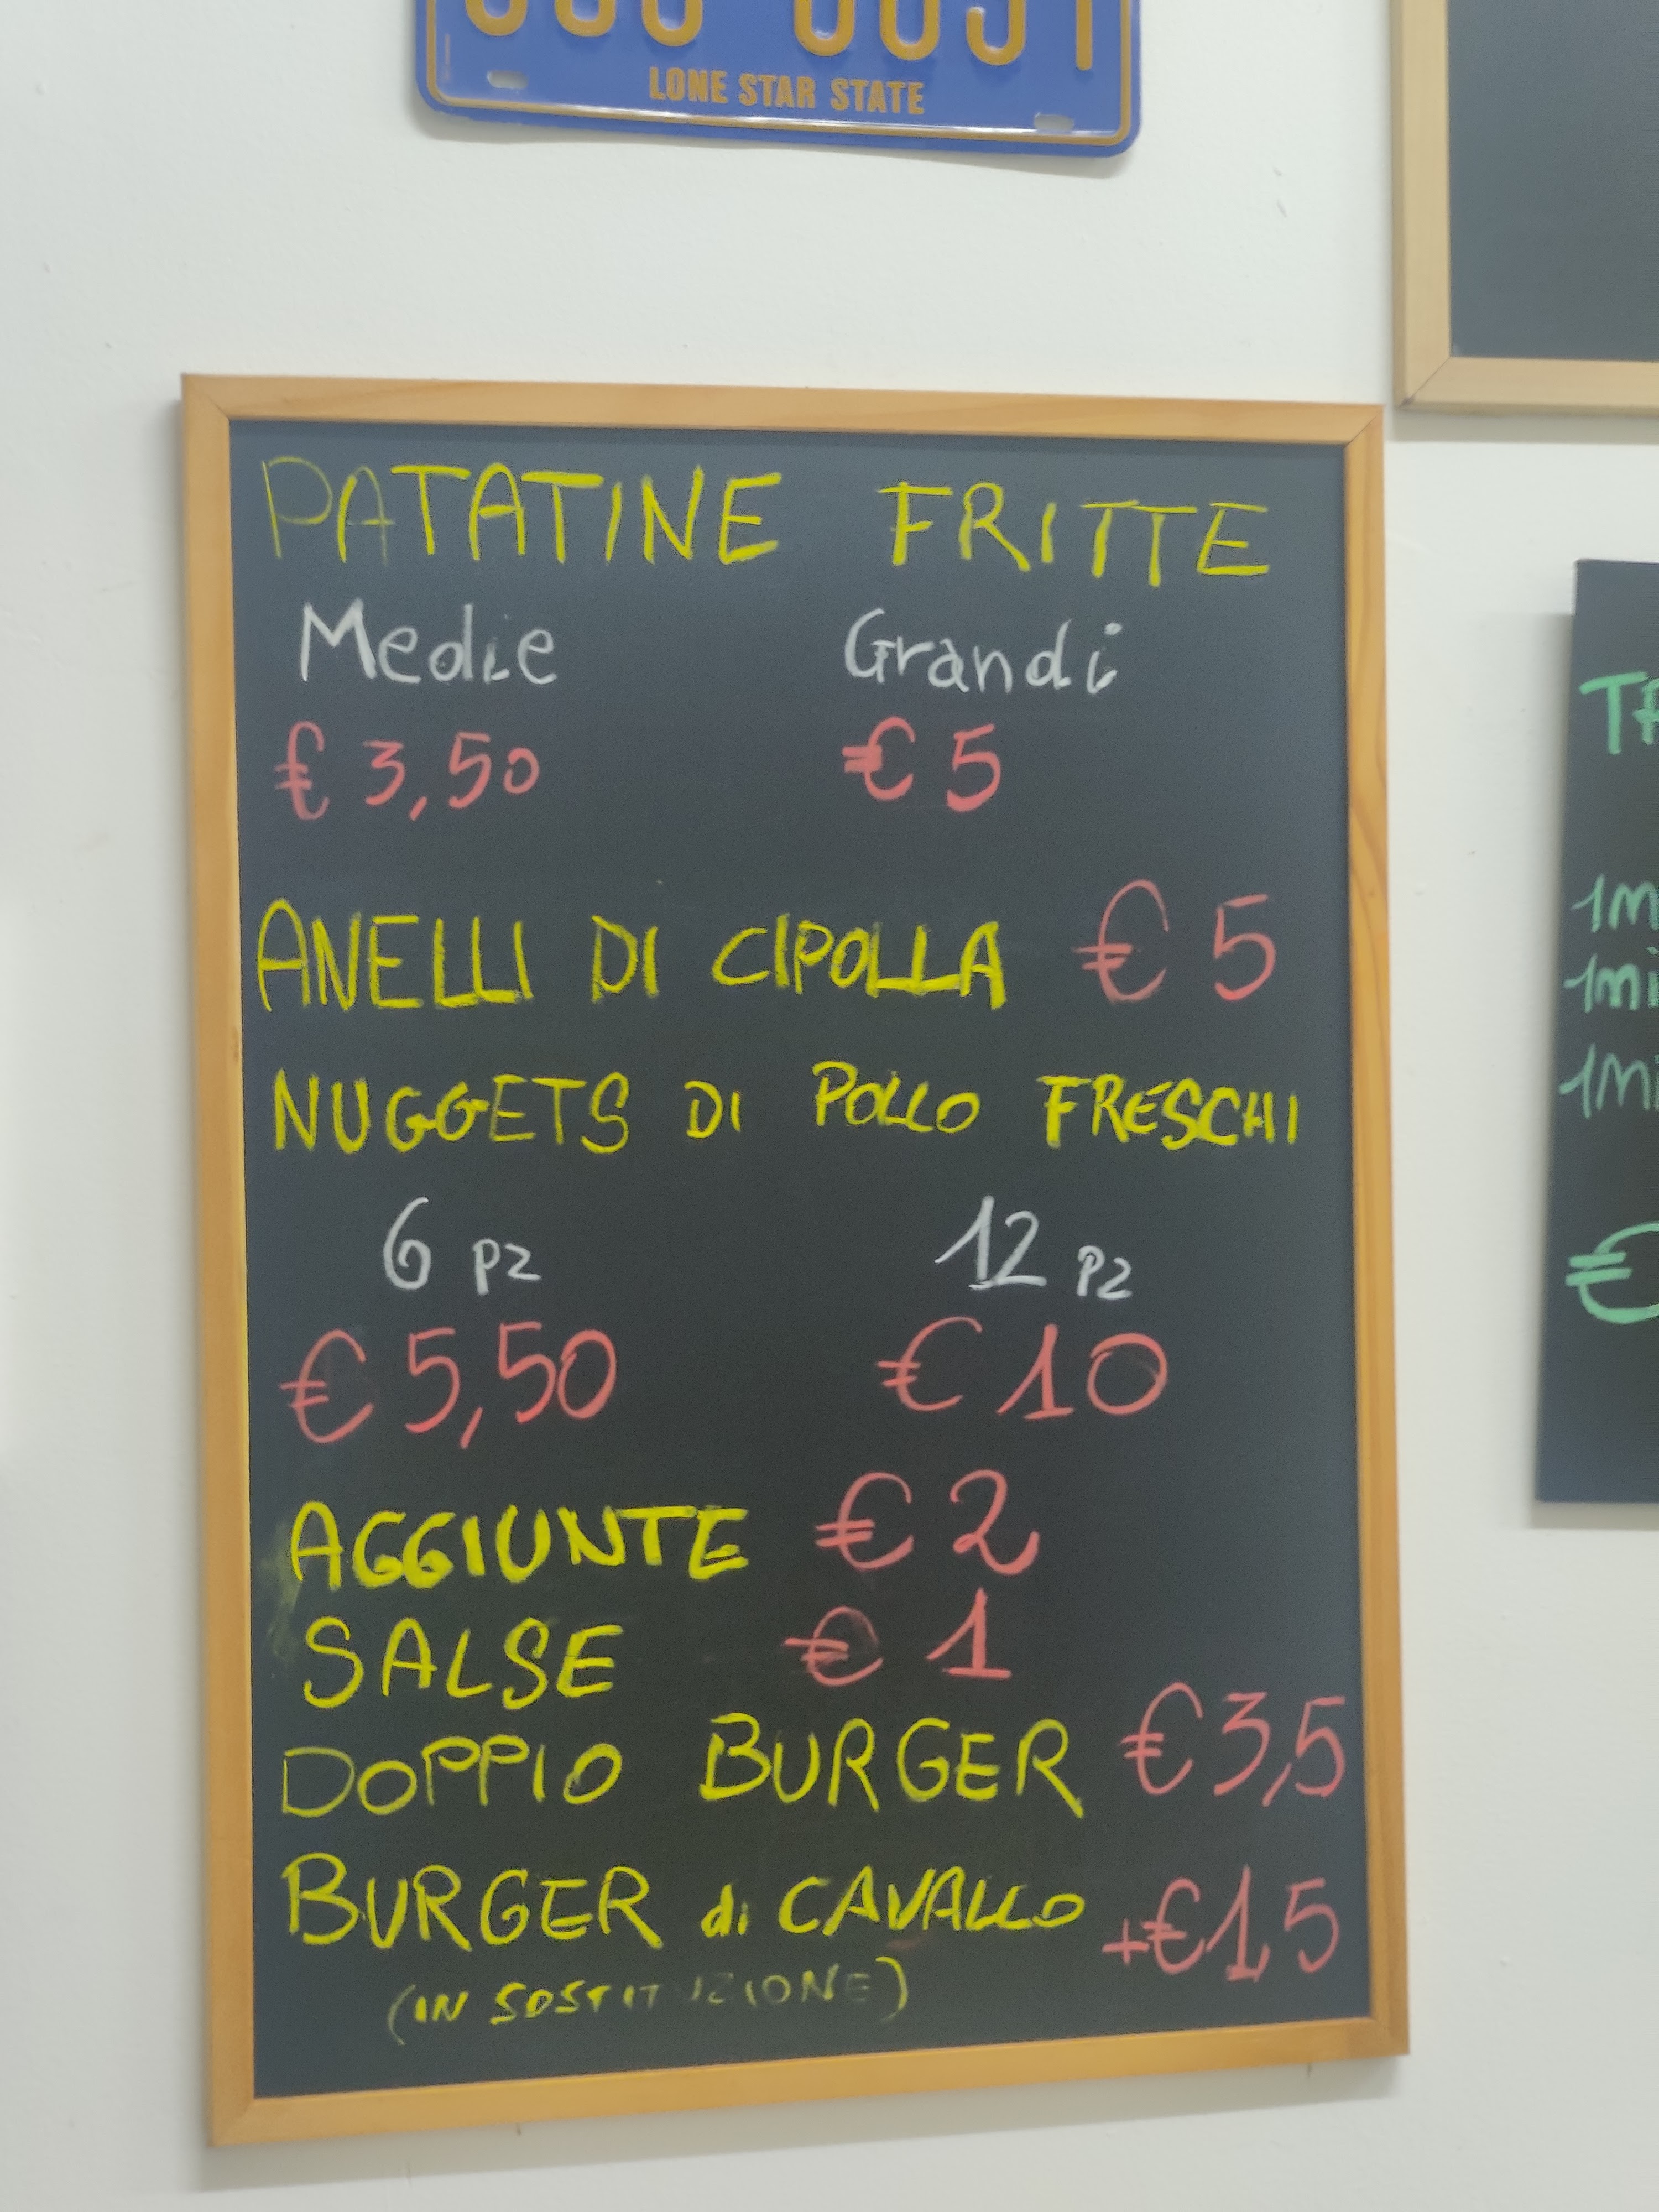 LONE STAR STATE
PATATINE FRITTE
Medie Grandi
€ 3,50 € 5
ANELLI DI CIPOLLA € 5
NUGGETS DI POLLO FRESCHI
6 pz 12 pz
€ 5,50 € 10
AGGIUNTE € 2
SALSE € 1
DOPPIO BURGER € 3,5
BURGER di CAVALLO +€1,5
(IN SOSTITUZIONE)
€